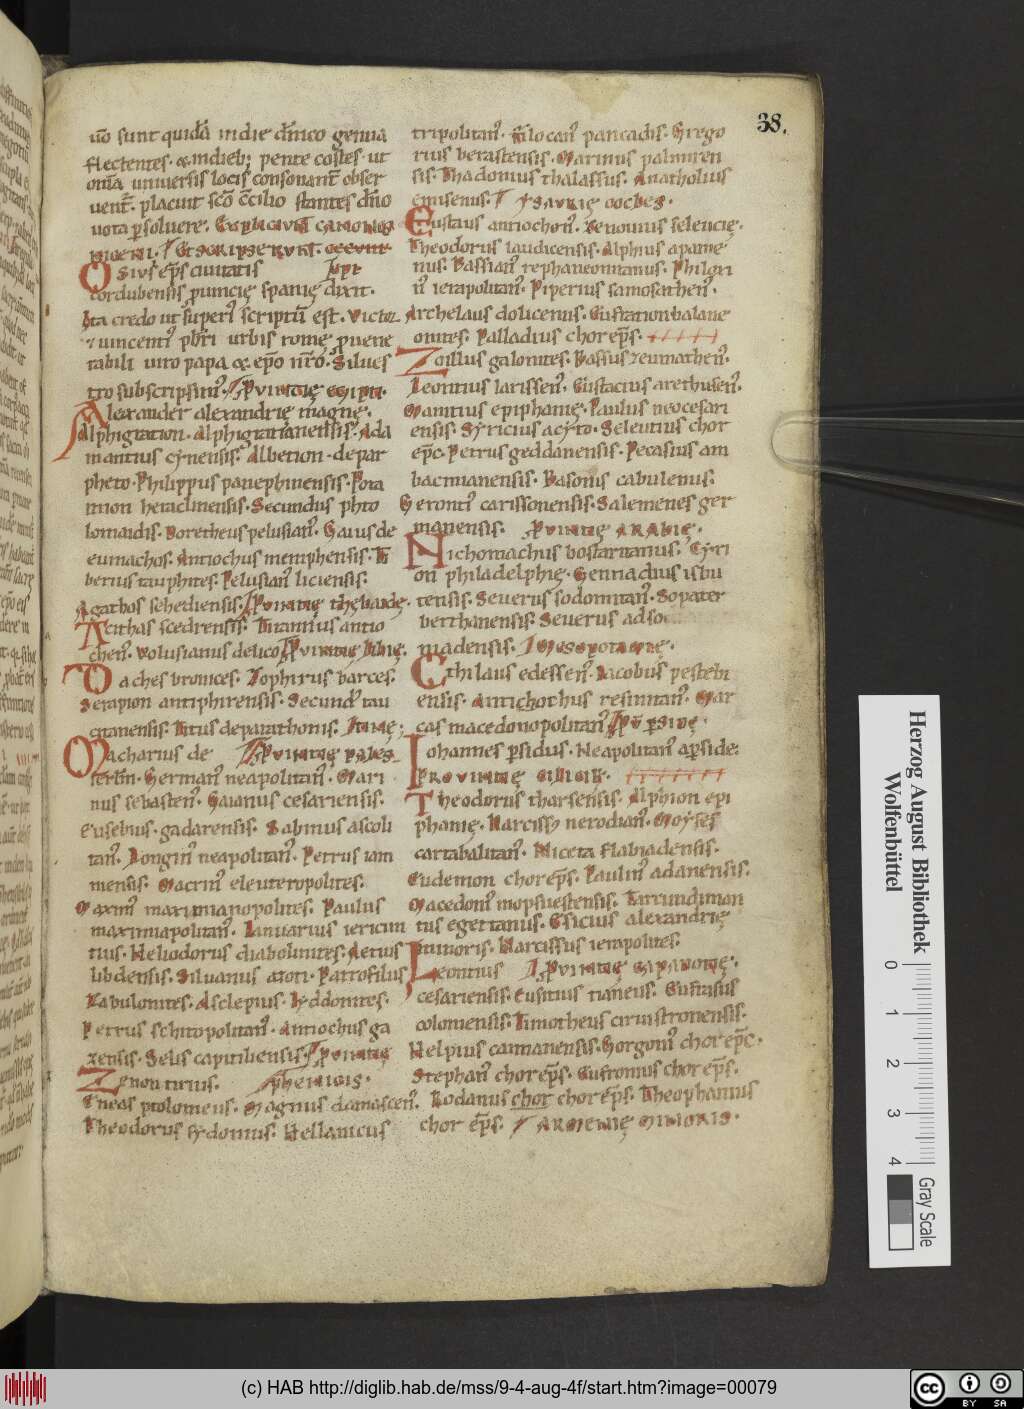 38.
uō sunt quidā in die dn̄ico genua
flectentes. & in dieb; pente costes. ut
om̄ia in universis locis consonant̄ obser
uent̄. placuit sc̄o cc̄ilio stantes dn̄o
uota p̱soluere. EXPLICIVNT CANONES
NICENI. ET SCRIPSERVNT.
Osius ep̄s ciuitatis
cordubensis ꝓuincię spanię dixit.
Ita credo ut superi᷒ scriptū est. Victor
⁊ uincenti᷒ pb̄ri urbis romę ꝓ uene
rabili uiro papa & ep̄o nr̄o. Silues
tro subscripsim᷒. PVINTIĘ EGIPTI.
Alexander alexandrię magnę.
Alphigration. Alphigratianensis. Ada
mantius cynensis. Albetion. de par
pheto. Philippus panephinensis. Pota
mion heraclinensis. Secundus phto
lomaidis. Doretheus pelusian᷒. Gaius de
eumachos. Antiochus memphensis. Ti
berius tau phites. Pelusian᷒ liciensis.
Agathos sehediensis. PVINTIĘ THEBAIDĘ.
Acithas scedrensis. Titannius antio
chen᷒. Volusianus delico. PVINTIĘ LIBIĘ.
Daches bronices. Zophirus barces.
Serapion antiphirensis. Secund᷒ tau
Titus deparathonis.
Macharius de PVINTIĘ PALES
ierl̄m. German᷒ neapolitan᷒. Mari
nus sebasten᷒. Gaianus cesariensis.
Eusebius. gadarensis. Sabinus ascoli
tan᷒. Longin᷒ neapolitan᷒. Petrus iam
mensis. Macrin᷒ eleuteropolites.
Maxim᷒ maximianopolites. Paulus
maximiapolitan᷒. Ianuarius iericun
tius. Heliodorus diabolunites. Aetius
libdensis. Siluanus atori. Patrofilus
Zabulonites. Asclepius. lyddonites.
Petrus schitopolitan᷒. Antiochus ga
zensis. Selis capitiliensis. PVINTIĘ
Zenon tirius. PHENICIS.
Eneas ptolomeus. Magnus damascen᷒.
Theodorus sydonius. Hellanicus
tripolitan᷒. Filocan᷒ pancadis. Grego
rius berastensis. Marinus palmiren
sis. Thadonius thalassus. Anatholius
emisenus. YSAVRIĘ
Eustaus antiochen᷒. Zenonius seleucię.
Theodorus laudicensis. Alphius apame
nus. Bassian᷒ rephaneontanus. Philoxi
n᷒ ierapolitan᷒. Piperius samosathen᷒.
Archelaus dolicenus. Eustation balane
onites. Palladius chorep̄s.
Zoillus galonites. Bassus zeumathen᷒.
Leontius larissen᷒. Eustacius arethusen᷒.
Manitius epiphanię. Paulus neocesari
ensis. Syricius acyto. Seleutius chor
ep̄c. Petrus geddanensis. Pecasius am
bacmanensis. Basonis cabulenus.
Geronti᷒ carissonensis. Salemenes ger
manensis. PVINTIĘ ARABIĘ.
Nichomachus bostaritanus. Cyri
on philadelphię. Gennadius isbu
tensis. Severus sodomitan᷒. Sopater
berthanensis. Severus adso
madensis. MESOPOTAMIĘ.
Ethilaus edessen᷒. Iacobus pestebi
ensis. Antichothus resinitan᷒. Mar
cas macedonopolitan᷒. PV PERSIDĘ.
Iohannes p̱sidus. Neapolitan᷒ a p̱side.
PROVINTIĘ CILICIĘ.
Theodorus tharsensis. Alphion epi
phanię. Narciss᷒ nerodian᷒. Moyses
cartabalitan᷒. Niceta flabiadensis.
Eudemon chorep̄s. Paulin᷒ adanensis.
Macedoni᷒ mopsuestensis. Tarrundiman
tus egetianus. Esicius alexandrię
minoris. Narcissus ierapolites.
Leontius PVINTIĘ CAPADOTIĘ.
cesariensis. Eusitius tianeus. Eustasius
coloniensis. Timotheus cirinstronensis.
Helpius caimanensis. Gorgoni᷒ chor ep̄c.
Stephan᷒ chor ep̄s. Eustronius chor ep̄s.
Rodanus chor chor ep̄s. Theophanius
chor ep̄s. ARMENIĘ MINORIS.
Herzog August Bibliothek
Wolfenbüttel
0 1 2 3 4
Gray Scale
(c) HAB http://diglib.hab.de/mss/9-4-aug-4f/start.htm?image=00079
cc BY SA